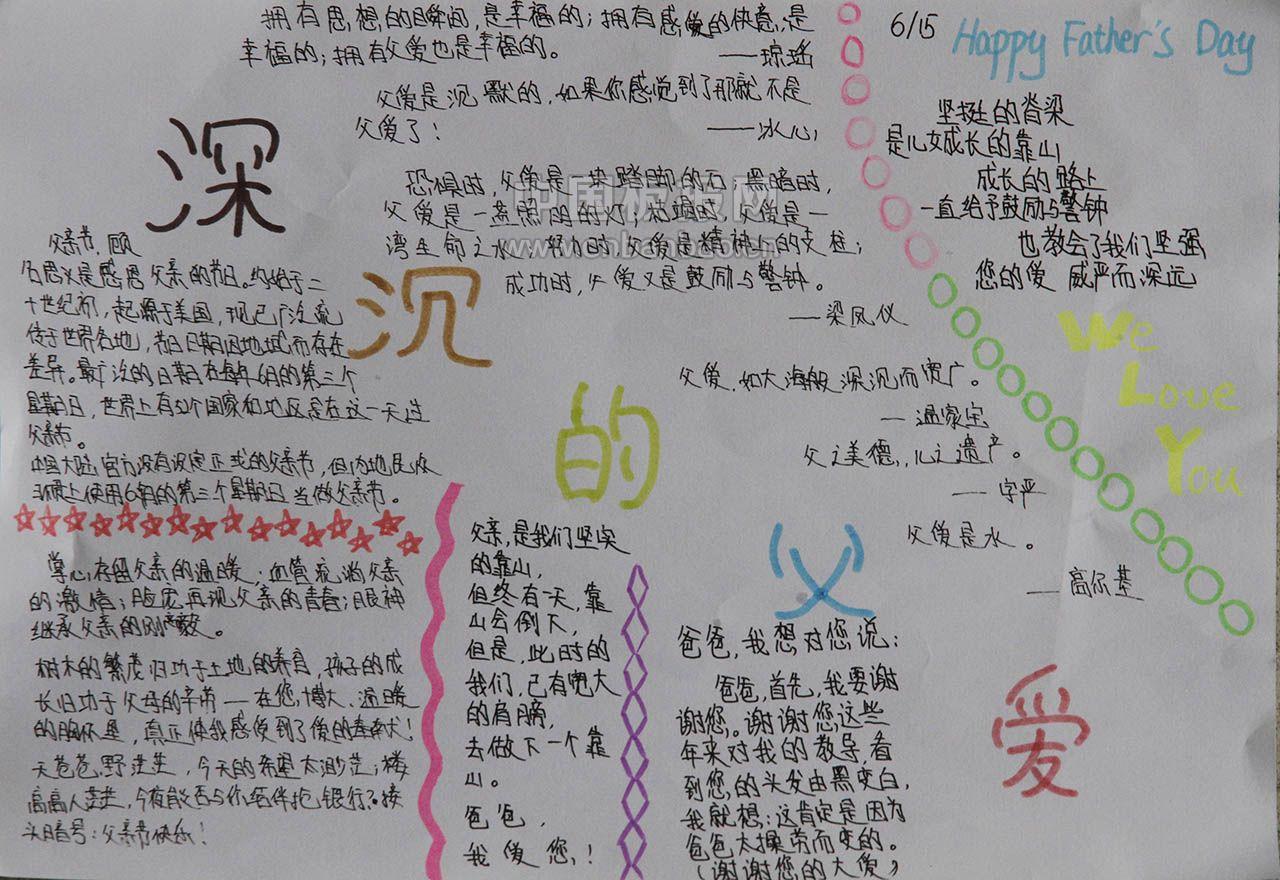 拥有思想的瞬间,是幸福的;拥有感受的快意,是
幸福的;拥有父爱也是幸福的。
——琼瑶
父爱是沉默的,如果你感觉到了那就不是
父爱了!
——冰心
恐惧时,父爱是一块踏脚的石;黑暗时,
父爱是一盏照明的灯;枯竭时,父爱是一
湾生命之水;努力时,父爱是精神上的支柱;
成功时,父爱又是鼓励与警钟。
——梁凤仪
6/15 Happy Father's Day
坚挺的脊梁
是儿女成长的靠山
成长的路上
一直给予鼓励与警钟
也教会了我们坚强
您的爱 威严而深远
We
Love
You
深
沉
的
父
爱
父亲节,顾
名思义是感恩父亲的节日。约始于二
十世纪初,起源于美国,现已广泛流
传于世界各地,节日日期因地域而存在
差异。最广泛的日期在每年6月的第三个
星期日,世界上有52个国家和地区是在这一天过
父亲节。
中国大陆官方没有设定正式的父亲节,但内地民众
习惯上使用6月的第三个星期日当做父亲节。
父爱,如大海般深沉而宽广。
—温家宝
父之美德,儿之遗产。
—字严
父爱是水。
—高尔基
掌心存留父亲的温暖;血管流淌父亲
的激情;脸庞再现父亲的青春;眼神
继承父亲的刚毅。
树木的繁茂归功于土地的养育,孩子的成
长归功于父母的辛劳—在您博大、温暖
的胸怀里,真正使我感受到了爱的奉献!
天苍苍,野茫茫,今天的希望太渺茫;楼
高高人茫茫,今夜能否与你结伴抢银行?接
头暗号:父亲节快乐!
父亲,是我们坚实
的靠山,
但终有一天,靠
山会倒下,
但是,此时的
我们,已有宽大
的肩膀,
去做下一个靠
山。
爸爸,
我爱您!
爸爸,我想对您说:
爸爸,首先,我要谢
谢您。谢谢您这些
年来对我的教导,看
到您的头发由黑变白,
我就想:这肯定是因为
爸爸太操劳而变的。
(谢谢您的大爱)